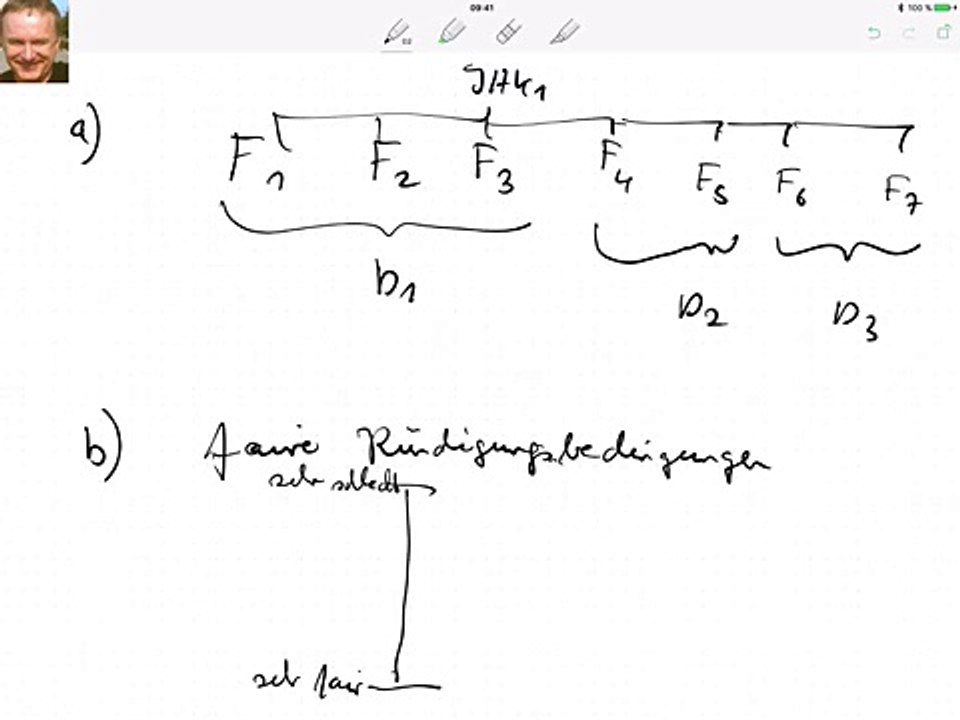 09:41
100 %
a)
F1 F2 F3 F4 F5 F6 F7
D1 D2 D3
b) faire Kündigungsbedingungen
sehr schlecht
sehr fair